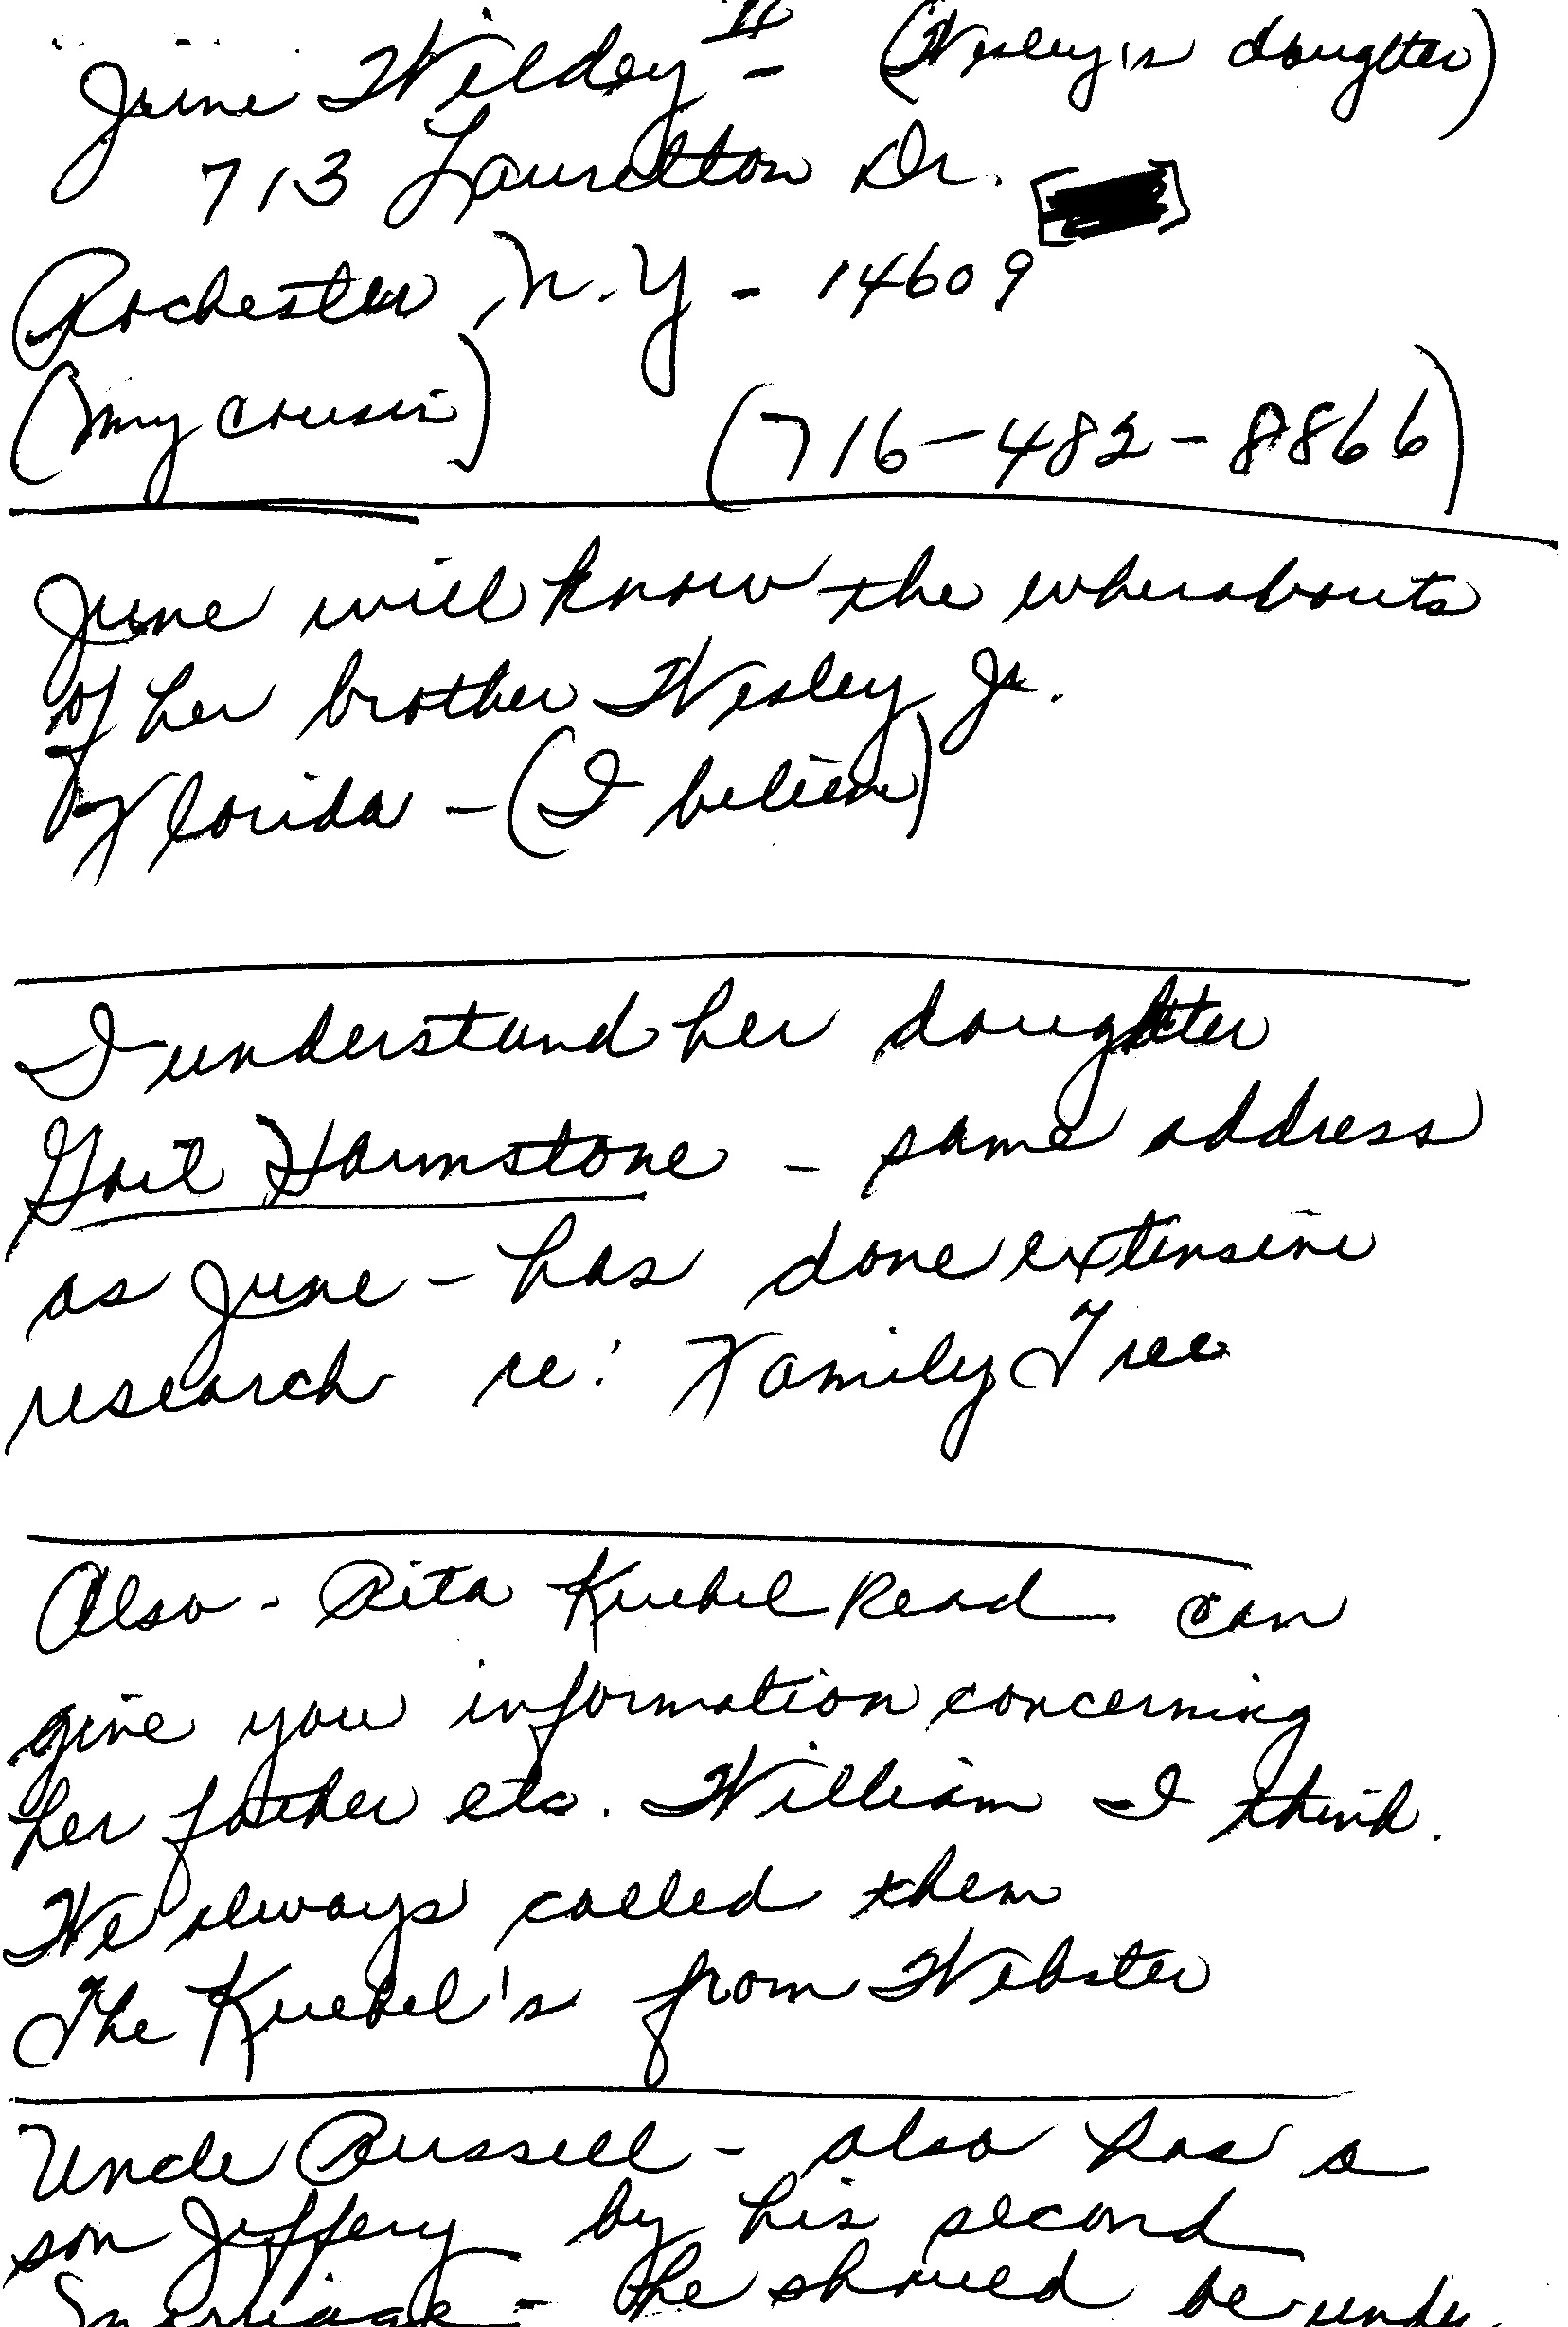 II
June Wildey - (Wesley's daughter)
713 Lauretton Dr.
Rochester, N.Y - 14609
(my cousin) (716-482-8866)
June will know the wherabouts
of her brother Wesley Jr.
Florida - (I believe)
I understand her daughter
Gail Harmstone - same address
as June - has done extensive
research re: Family Tree
Also - Rita Kuebel Read can
give you information concerning
her father etc. William I think.
We always called them
The Kuebel's from Webster
Uncle Russell - also has a
son Jeffery by his second
marriage - he should be under